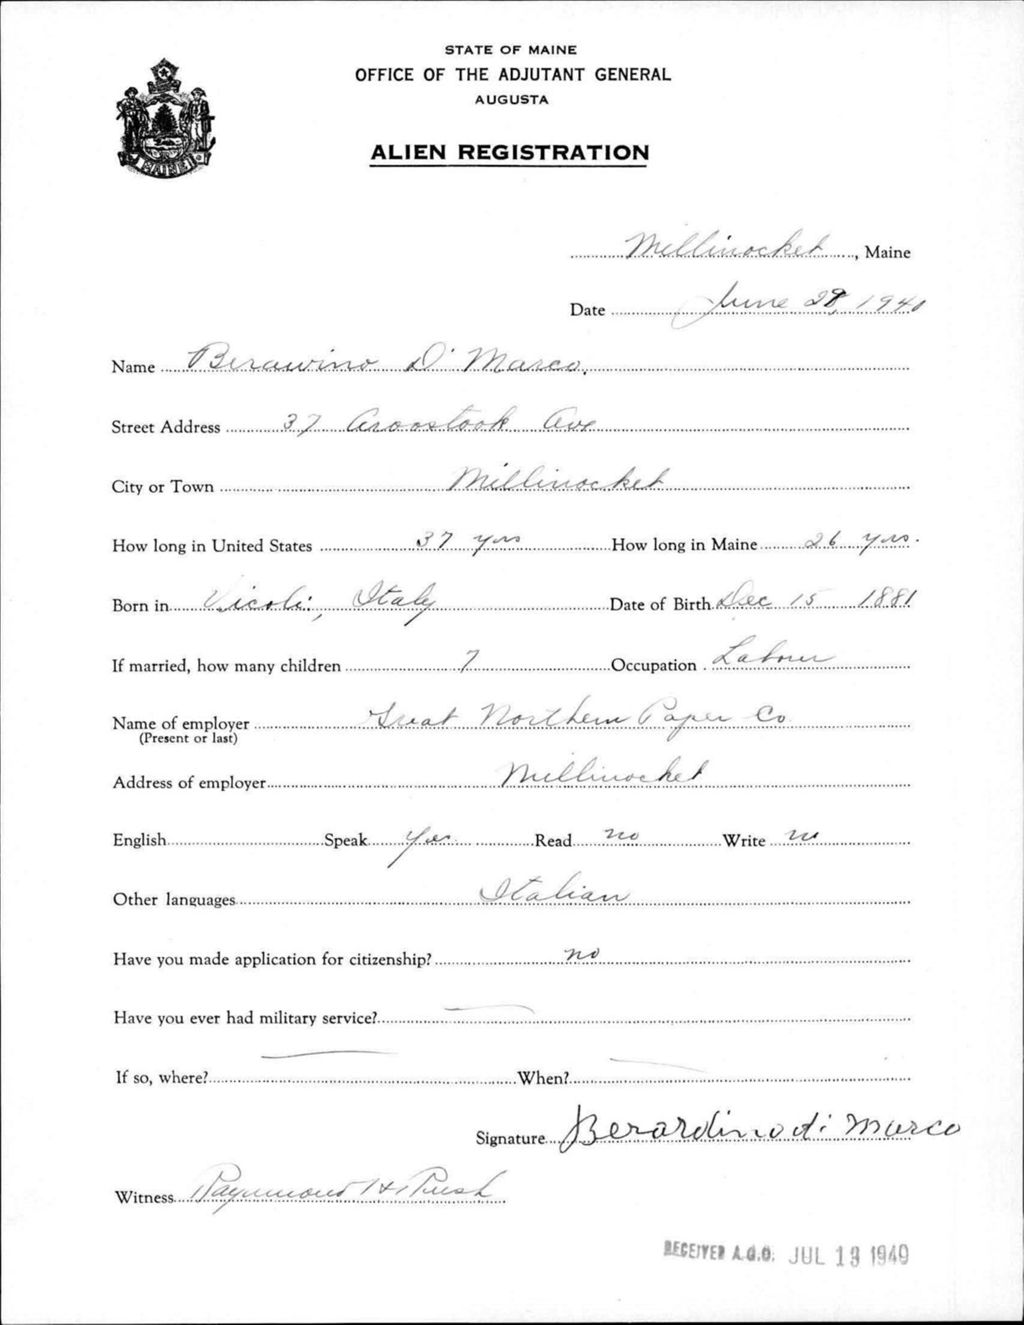 STATE OF MAINE
OFFICE OF THE ADJUTANT GENERAL
AUGUSTA
ALIEN REGISTRATION
MAINE
Millinocket, Maine
Date June 28, 1940
Name Berawino D'Marco.
Street Address 37 Aroostook Ave
City or Town Millinocket
How long in United States 37 yrs How long in Maine 26 yrs.
Born in Vicoli, Italy Date of Birth Dec 15 1881
If married, how many children 7 Occupation Laborer
Name of employer Great Northern Paper Co
(Present or last)
Address of employer Millinocket
English Speak Yes Read no Write no
Other languages Italian
Have you made application for citizenship? no
Have you ever had military service? —
If so, where? — When? —
Signature Berardino di Marco
Witness Raymond H
RECEIVED A.G.O. JUL 13 1940